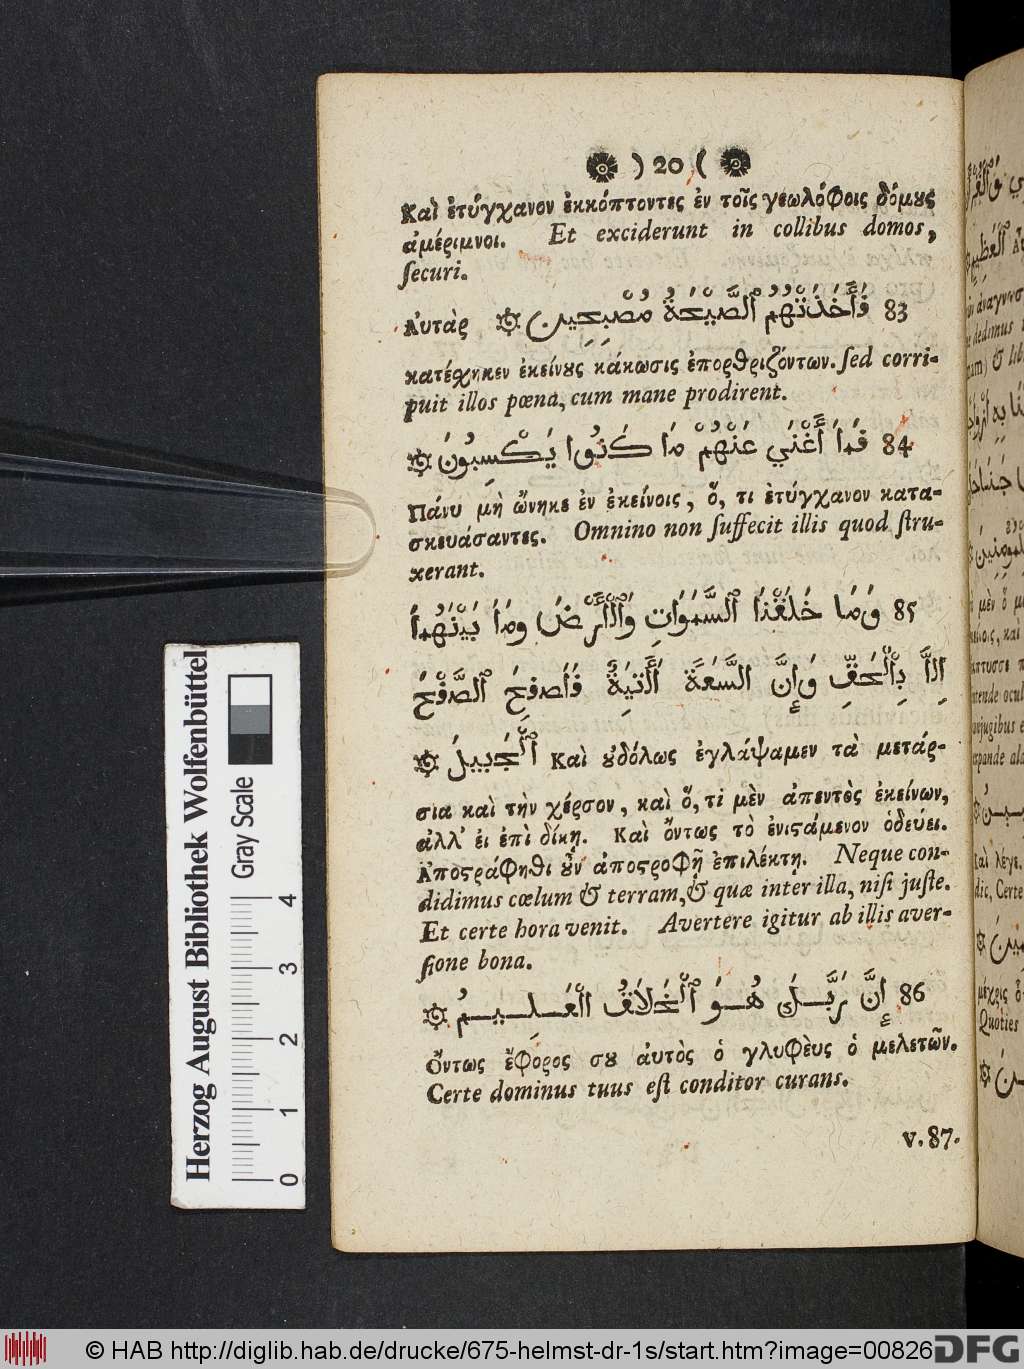 ) 20 (
Καὶ ἐτύγχανον ἐκκόπτοντες ἐν τοῖς γεωλόφοις δόμȣς
ἀμέριμνοι. Et exciderunt in collibus domos,
ſecuri.
83 فَأَخَذَتْهُمُ ٱلصَّيْحَةُ مُصْبِحِين
Αὐτὰρ
κατέσχηκεν ἐκείνȣς κάκωσις ἐπορθριζόντων. ſed corri-
puit illos pœna, cum mane prodirent.
84 فَمَا أَغْنَي عَنْهُمْ مَا كَانُوا يَكْسِبُونَ
Πάνυ μὴ ὤνηκε ἐν ἐκείνοις, ὅ, τι ἐτύγχανον κατα-
σκευάσαντες. Omnino non ſuffecit illis quod ſtru-
xerant.
85 وَمَا خَلَقْنَا ٱلسَّمَوَاتِ وَٱلْأَرْضَ وَمَا بَيْنَهُمَا
إِلاَّ بِٱلْحَقِّ وَإِنَّ السَّعَةَ أَلَٰتِيَةُ فَٱصفِحَ ٱلصَّفْحَ
ٱلْجَبِيلَ Καὶ ȣ̓δόλως ἐγλάψαμεν τὰ μετάρ-
σια καὶ τὴν χέρσον, καὶ ὅ, τι μὲν ἀπεντὸς ἐκείνων,
ἀλλ' ἐι ἐπὶ δίκῃ. Καὶ ὄντως τὸ ἐνιστάμενον ὁδεύει.
Ἀποστράφηθι ȣ̓͂ν ἀποστροφῇ ἐπιλέκτῃ. Neque con-
didimus cœlum & terram, & quæ inter illa, niſi juſte.
Et certe hora venit. Avertere igitur ab illis aver-
ſione bona.
86 إِنَّ رَبَّكَ هُوَ ٱلْخَلاَقُ الْعَلِيمُ
Ὄντως ἔφορος σȣ ἀυτὸς ὁ γλυφὲυς ὁ μελετῶν.
Certe dominus tuus eſt conditor curans.
v. 87.
Herzog August Bibliothek Wolfenbüttel
Gray Scale
0 1 2 3 4
© HAB http://diglib.hab.de/drucke/675-helmst-dr-1s/start.htm?image=00826
DFG